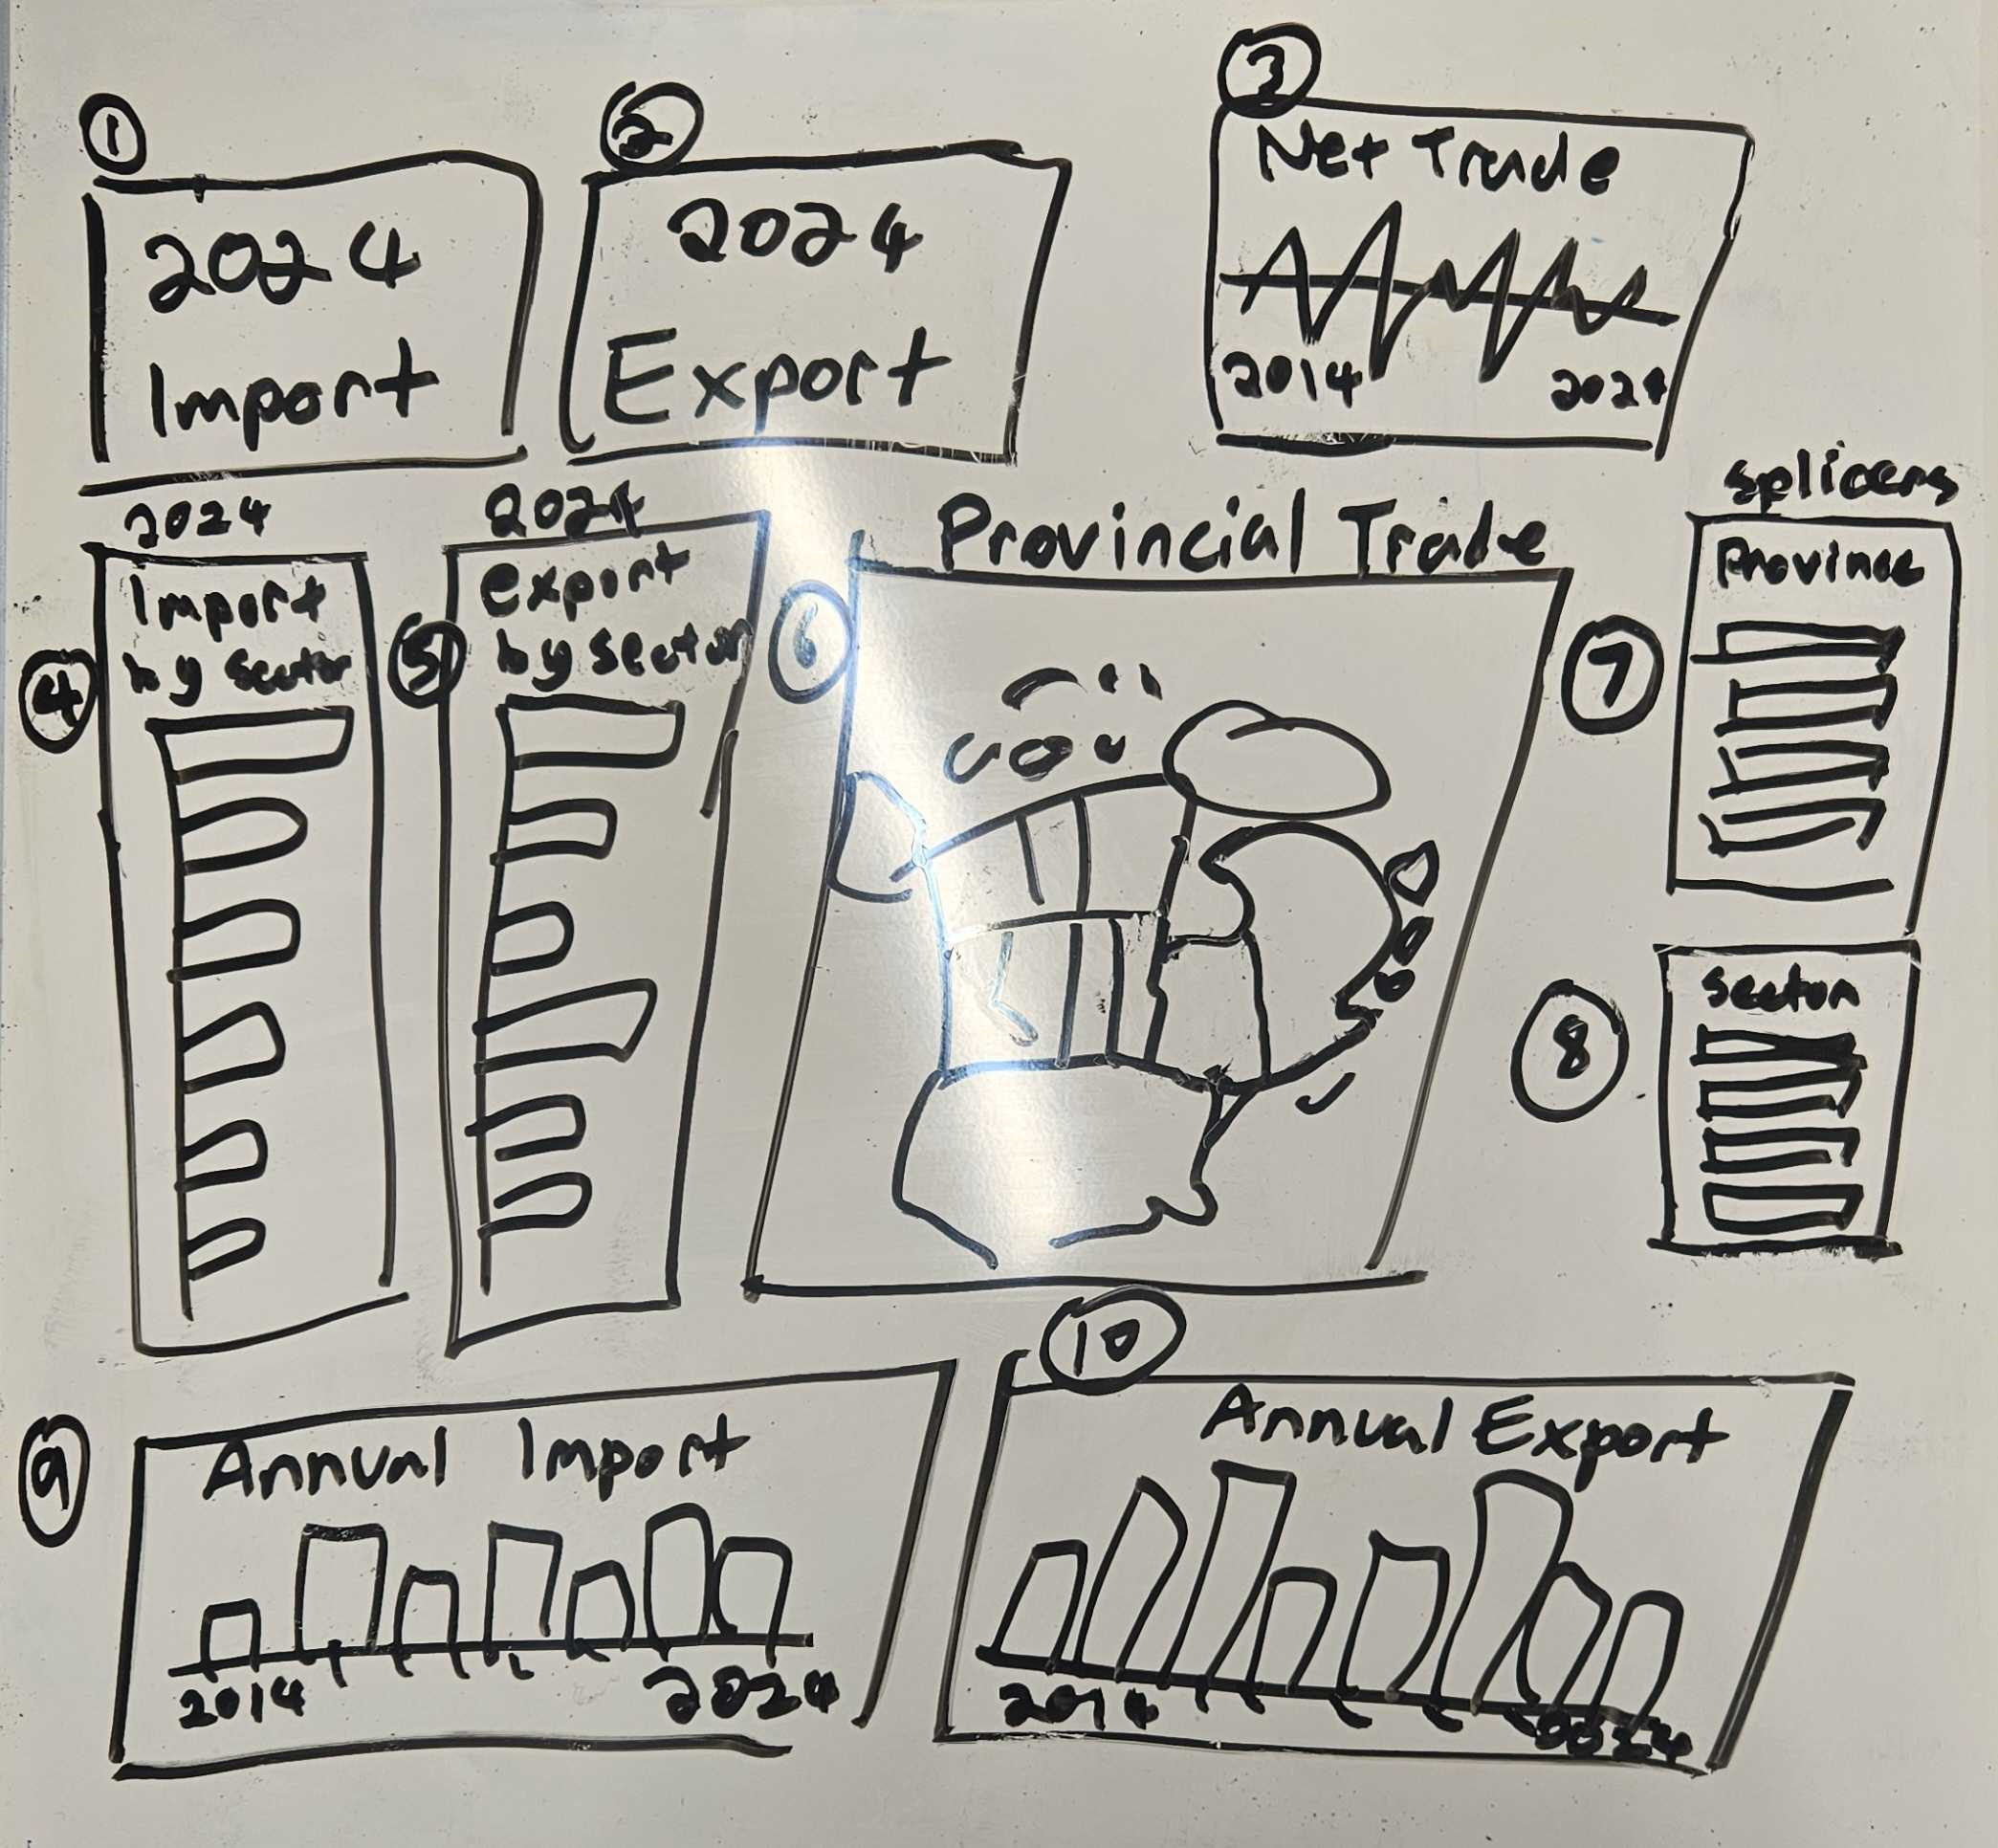 1
2024
Import
2
2024
Export
3
Net Trade
2014
2024
2024
4
Import
by sector
2024
5
export
by sector
Provincial Trade
6
splicers
7
Province
8
sector
9
Annual Import
2014
2024
10
Annual Export
2014
2024